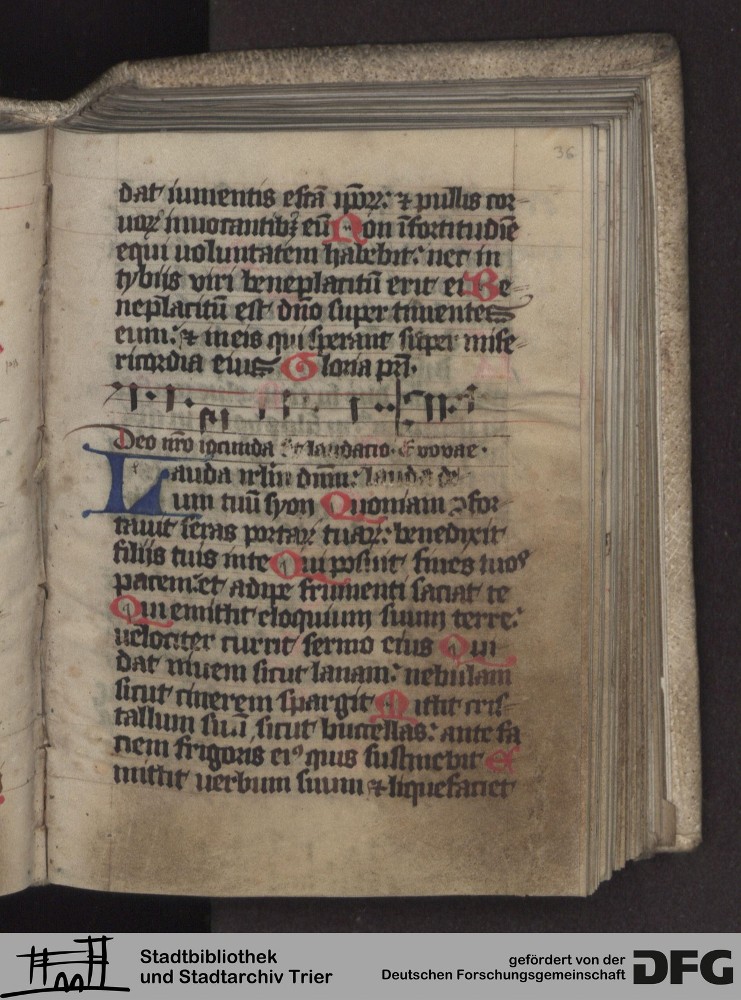 36
dat iumentis escā ipoꝝ: ⁊ pullis cor-
uoꝝ inuocantibꝫ eū Non ī fortitudīe
equi uoluntatem habebit: nec in
tybijs viri beneplacitū erit ei Be-
neplacitū est dn̄o super timentes
eum: ⁊ in eis qui sperant super mise-
ricordia eius Gloria pr̄i.
Deo nr̄o iocunda sit laudatio. Evovae.
Lauda irl̄m dn̄m: lauda de-
um tuū syon Quoniam ꝯfor-
tauit seras portaꝝ tuaꝝ: benedixit
filijs tuis in te Qui posuit fines tuoꝰ
pacem: et adipe frumenti saciat te
Qui emittit eloquium suum terre:
uelociter currit sermo eius Qui
dat niuem sicut lanam: nebulam
sicut cinerem spargit Mittit cris-
tallum suū sicut buccellas: ante fa
ciem frigoris eiꝰ quis sustinebit Et
mittit uerbum suum ⁊ liquefaciet
Stadtbibliothek
und Stadtarchiv Trier
gefördert von der
Deutschen Forschungsgemeinschaft
DFG